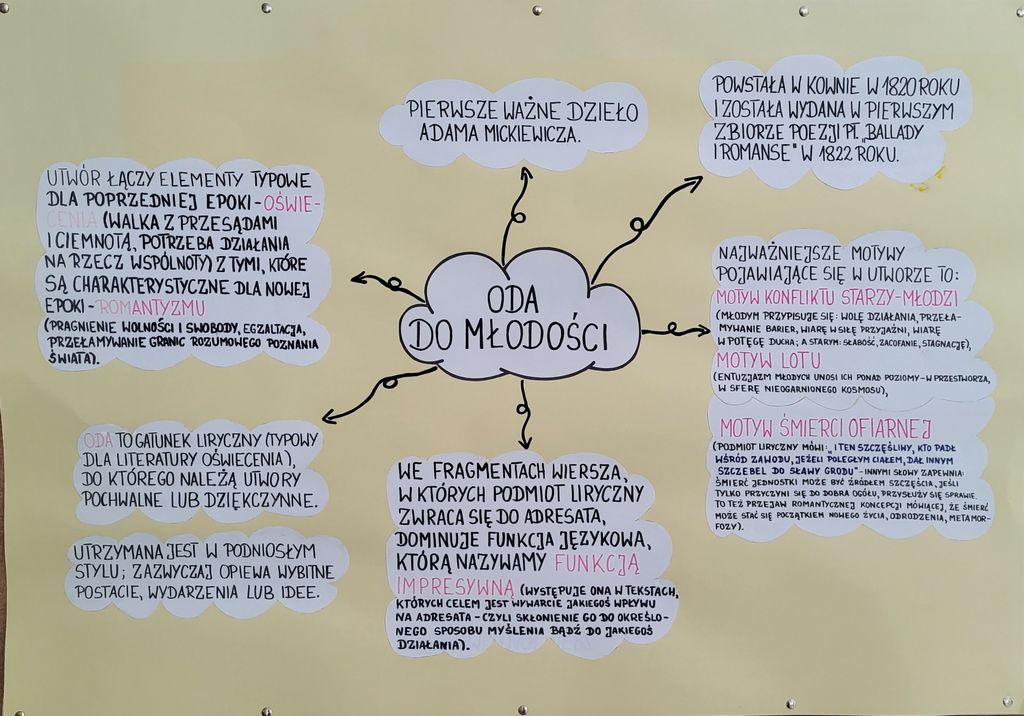 PIERWSZE WAŻNE DZIEŁO
ADAMA MICKIEWICZA.
POWSTAŁA W KOWNIE W 1820 ROKU
I ZOSTAŁA WYDANA W PIERWSZYM
ZBIORZE POEZJI PT. „BALLADY
I ROMANSE" W 1822 ROKU.
UTWÓR ŁĄCZY ELEMENTY TYPOWE
DLA POPRZEDNIEJ EPOKI - OŚWIE-
CENIA (WALKA Z PRZESĄDAMI
I CIEMNOTĄ, POTRZEBA DZIAŁANIA
NA RZECZ WSPÓLNOTY) Z TYMI, KTÓRE
SĄ CHARAKTERYSTYCZNE DLA NOWEJ
EPOKI - ROMANTYZMU
(PRAGNIENIE WOLNOŚCI I SWOBODY, EGZALTACJA,
PRZEŁAMYWANIE GRANIC ROZUMOWEGO POZNANIA
ŚWIATA).
ODA
DO MŁODOŚCI
NAJWAŻNIEJSZE MOTYWY
POJAWIAJĄCE SIĘ W UTWORZE TO:
MOTYW KONFLIKTU STARZY-MŁODZI
(MŁODYM PRZYPISUJE SIĘ: WOLĘ DZIAŁANIA, PRZEŁA-
MYWANIE BARIER, WIARĘ W SIŁĘ PRZYJAŹNI, WIARĘ
W POTĘGĘ DUCHA; A STARYM: SŁABOŚĆ, ZACOFANIE, STAGNACJĘ),
MOTYW LOTU
(ENTUZJAZM MŁODYCH UNOSI ICH PONAD POZIOMY - W PRZESTWORZA,
W SFERĘ NIEOGARNIONEGO KOSMOSU),
MOTYW ŚMIERCI OFIARNEJ
(PODMIOT LIRYCZNY MÓWI: „I TEN SZCZĘŚLIWY, KTO PADŁ
WŚRÓD ZAWODU, JEŻELI POLEGŁYM CIAŁEM, DAŁ INNYM
SZCZEBEL DO SŁAWY GRODU" - INNYMI SŁOWY ZAPEWNIA:
ŚMIERĆ JEDNOSTKI MOŻE BYĆ ŹRÓDŁEM SZCZĘŚCIA, JEŚLI
TYLKO PRZYCZYNI SIĘ DO DOBRA OGÓŁU, PRZYSŁUŻY SIĘ SPRAWIE.
TO TEŻ PRZEJAW ROMANTYCZNEJ KONCEPCJI MÓWIĄCEJ, ŻE ŚMIERĆ
MOŻE STAĆ SIĘ POCZĄTKIEM NOWEGO ŻYCIA, ODRODZENIA, METAMOR-
FOZY).
ODA TO GATUNEK LIRYCZNY (TYPOWY
DLA LITERATURY OŚWIECENIA),
DO KTÓREGO NALEŻĄ UTWORY
POCHWALNE LUB DZIĘKCZYNNE.
UTRZYMANA JEST W PODNIOSŁYM
STYLU; ZAZWYCZAJ OPIEWA WYBITNE
POSTACIE, WYDARZENIA LUB IDEE.
WE FRAGMENTACH WIERSZA,
W KTÓRYCH PODMIOT LIRYCZNY
ZWRACA SIĘ DO ADRESATA,
DOMINUJE FUNKCJA JĘZYKOWA,
KTÓRĄ NAZYWAMY FUNKCJĄ
IMPRESYWNĄ (WYSTĘPUJE ONA W TEKSTACH,
KTÓRYCH CELEM JEST WYWARCIE JAKIEGOŚ WPŁYWU
NA ADRESATA - CZYLI SKŁONIENIE GO DO OKREŚLO-
NEGO SPOSOBU MYŚLENIA BĄDŹ DO JAKIEGOŚ
DZIAŁANIA).